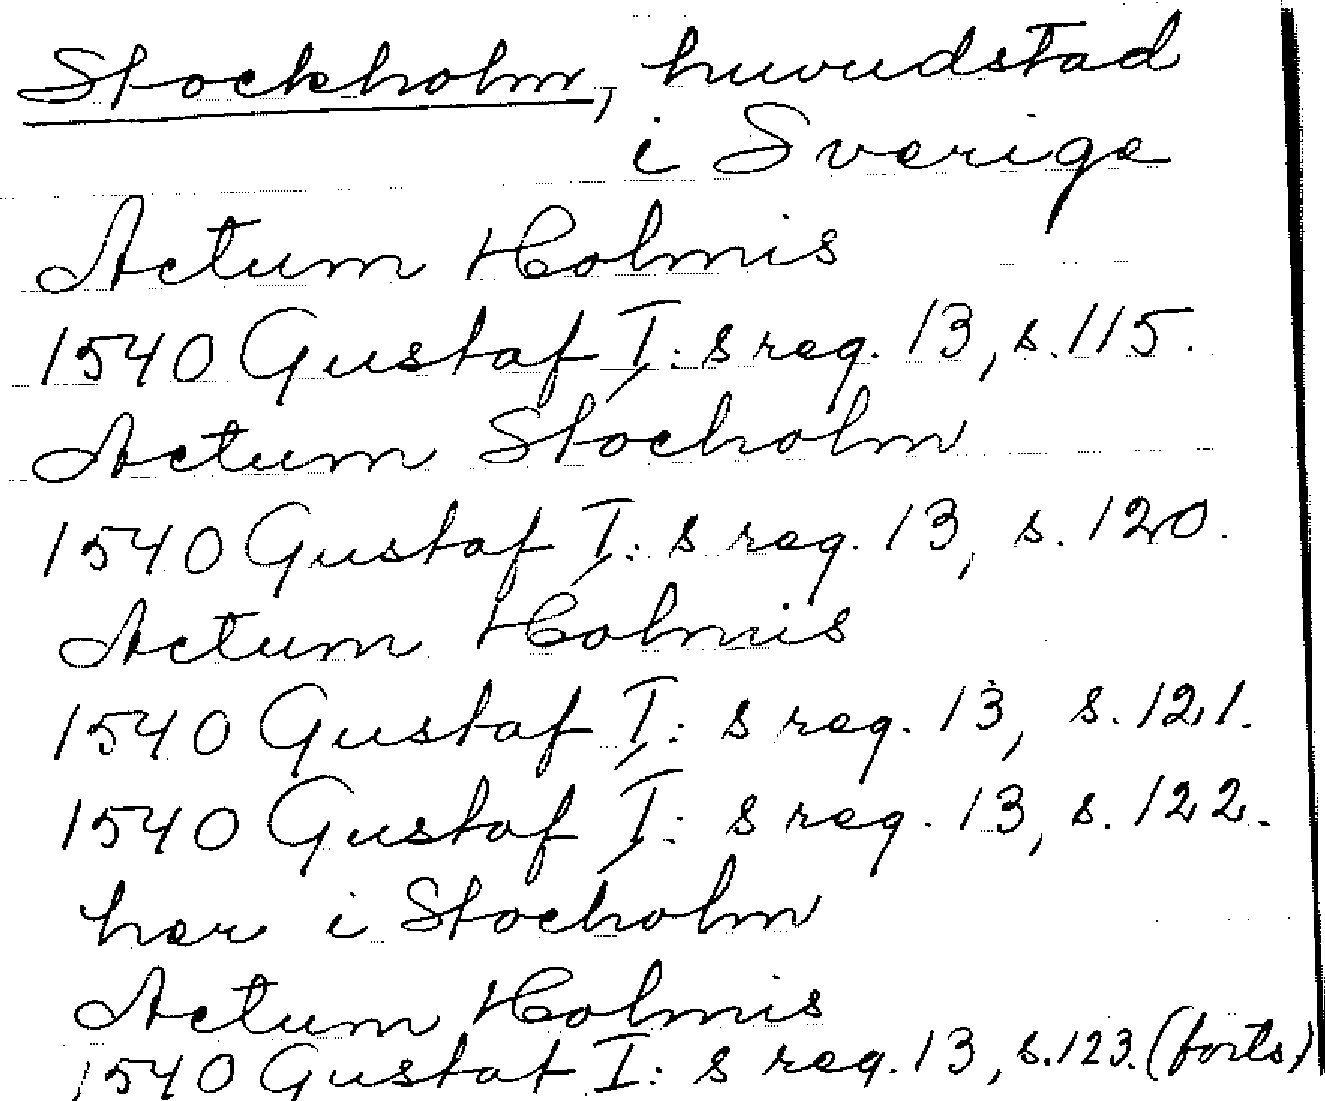 Stockholm, huvudstad
i Sverige
Actum Holmis
1540 Gustaf I: s reg. 13, s. 115.
Actum Stocholm
1540 Gustaf I: s reg. 13, s. 120.
Actum Holmis
1540 Gustaf I: s reg. 13, s. 121.
1540 Gustaf I: s reg. 13, s. 122.
her i Stocholm
Actum Holmis
1540 Gustaf I: s reg. 13, s. 123. (forts)